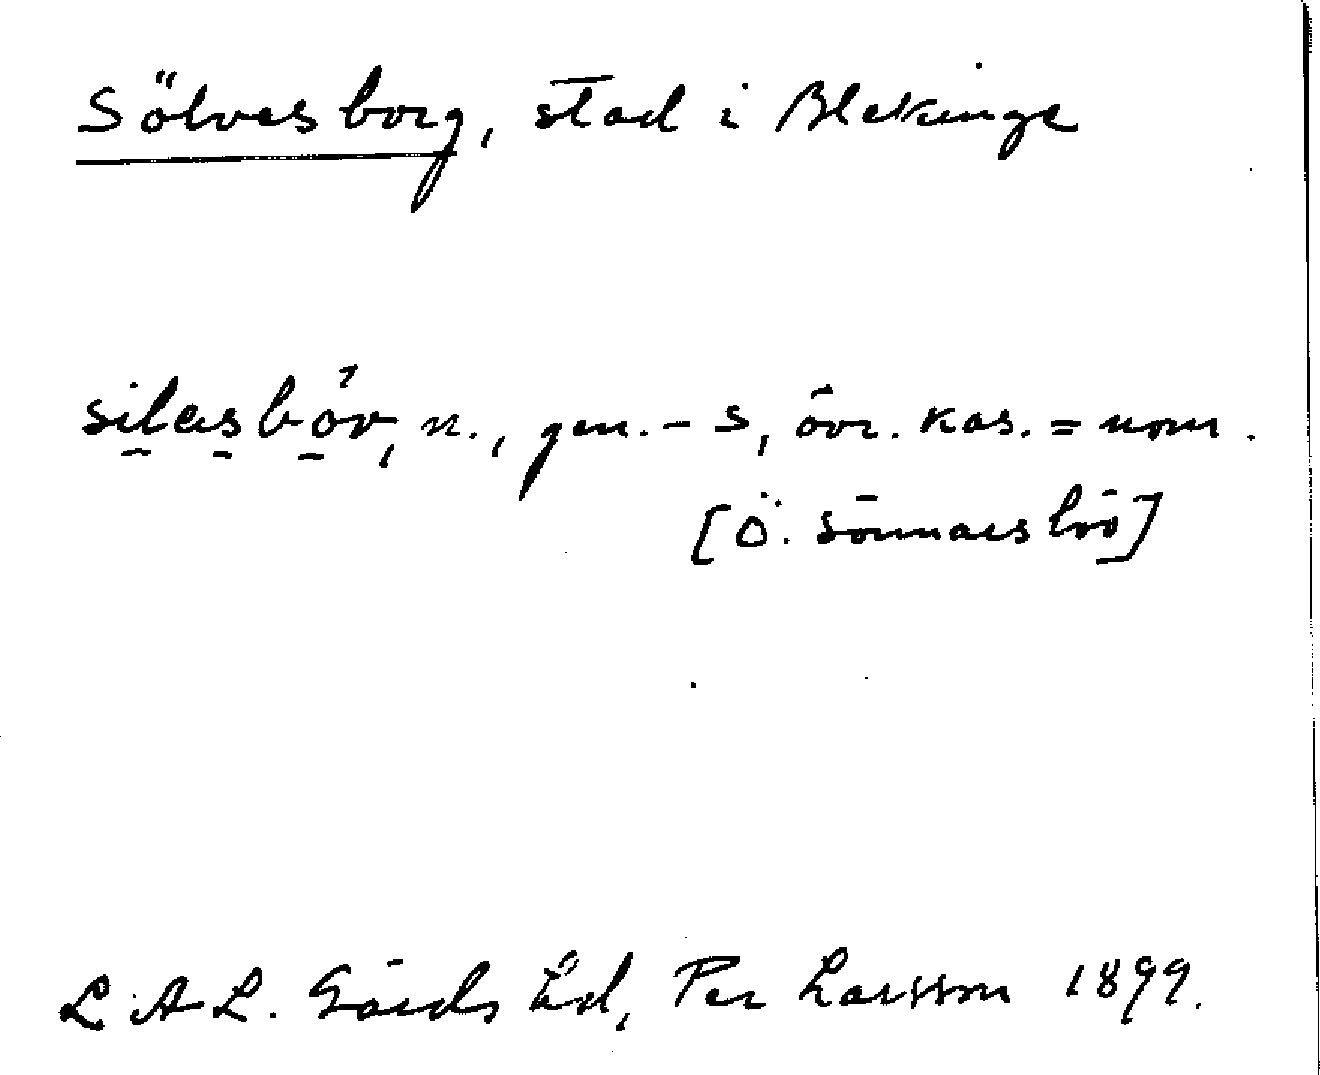 Sölvesborg, stad i Blekinge
silasbór, n., gen. - s, övr. kas. = nom.
[Ö. Sönnarslöv]
L.A.L. Gärds hd, Per Larsson 1899.